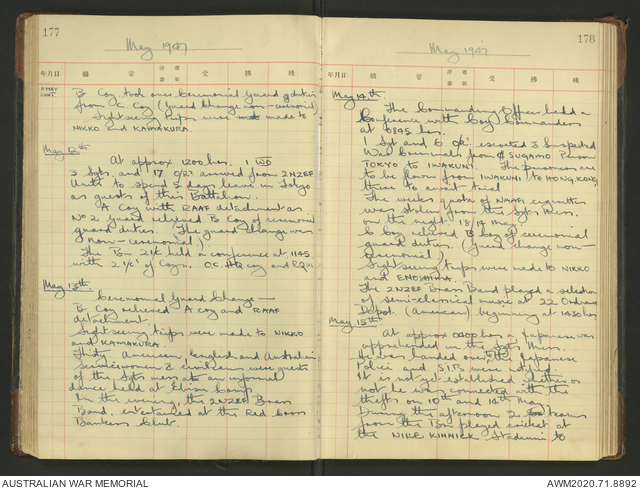 177
May 1947
年月日 摘 受 残
11 MAY
Cont.
B Coy. took over Ceremonial Guard duties
from C. Coy (Guard Change non-ceremonial)
Sightseeing trips were made to
NIKKO and KAMAKURA.
May 12th
At approx 1200 hrs. 1 WO
3 Sgts. and 17 O/R arrived from 2NZEF
Units to spend 5 days leave in Tokyo
as guests of this Battalion.
A Coy with RAAF detachment as
No 2 Guard relieved B Coy of ceremonial
guard duties. (The guard change was
non-ceremonial)
The Bn 2I/C held a conference at 1145
with 2 I/C's of Coys. O.C. HQ Coy and RQM
May 13th.
Ceremonial Guard Change —
B Coy relieved A Coy and RAAF
detachment.
Sightseeing trips were made to NIKKO
and KAMAKURA.
Thirty American, English and Australian
Servicewomen & civilians were guests
of the Sgts mess at an informal
dance held at Ebisu Camp.
In the evening, the 2NZEF Brass
Band, entertained at the Red Cross
Bankers Club.
178
May 1947
年月日 摘 受 残
May 14th
The Commanding Officer held a
Conference with Coy Commanders
at 0845 hrs.
1 Sgt and 6 O/R escorted 3 suspected
War Criminals from SUGAMO Prison
TOKYO to IWAKUNI. The prisoners are
to be flown from IWAKUNI to HONG KONG
there to await trial.
The weeks quota of NAAFI cigarettes
was stolen from the Sgts Mess.
on the night May
C Coy relieved B Coy of ceremonial
guard duties. (Guard change non-
ceremonial)
Sightseeing trips were made to NIKKO
and ENOSHIMA.
The 2NZEF Brass Band played a selection
of semi-classical music at 22 Ordnance
Depot. (American) beginning at 1430 hrs
May 15th
At approx 0400 hrs a Japanese was
apprehended in the Sgts Mess.
He was handed over to the Japanese
Police and S.I.B. were notified.
It is not yet established whether or
not he was connected with the
thefts on 10th and 14th May
During the afternoon 2 teams
from the Bn played cricket at
the NILE KINNICK Stadium to
AUSTRALIAN WAR MEMORIAL
AWM2020.71.8892